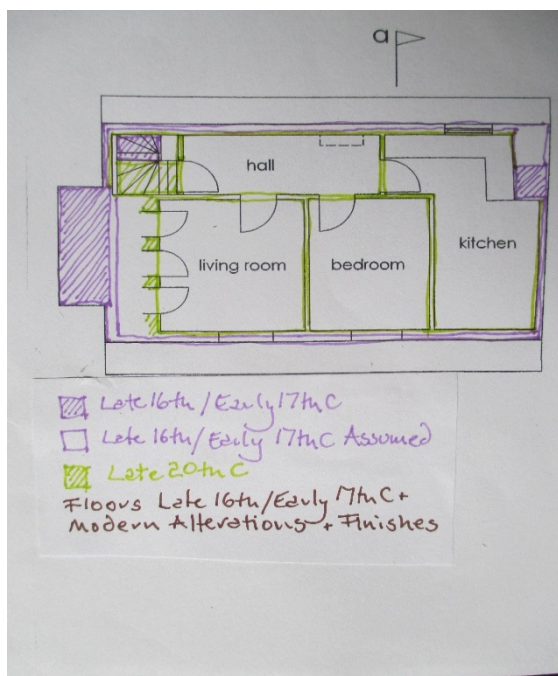 a
hall
living room
bedroom
kitchen
Late 16th / Early 17th C
Late 16th / Early 17th C Assumed
Late 20th C
Floors Late 16th / Early 17th C +
Modern Alterations + Finishes